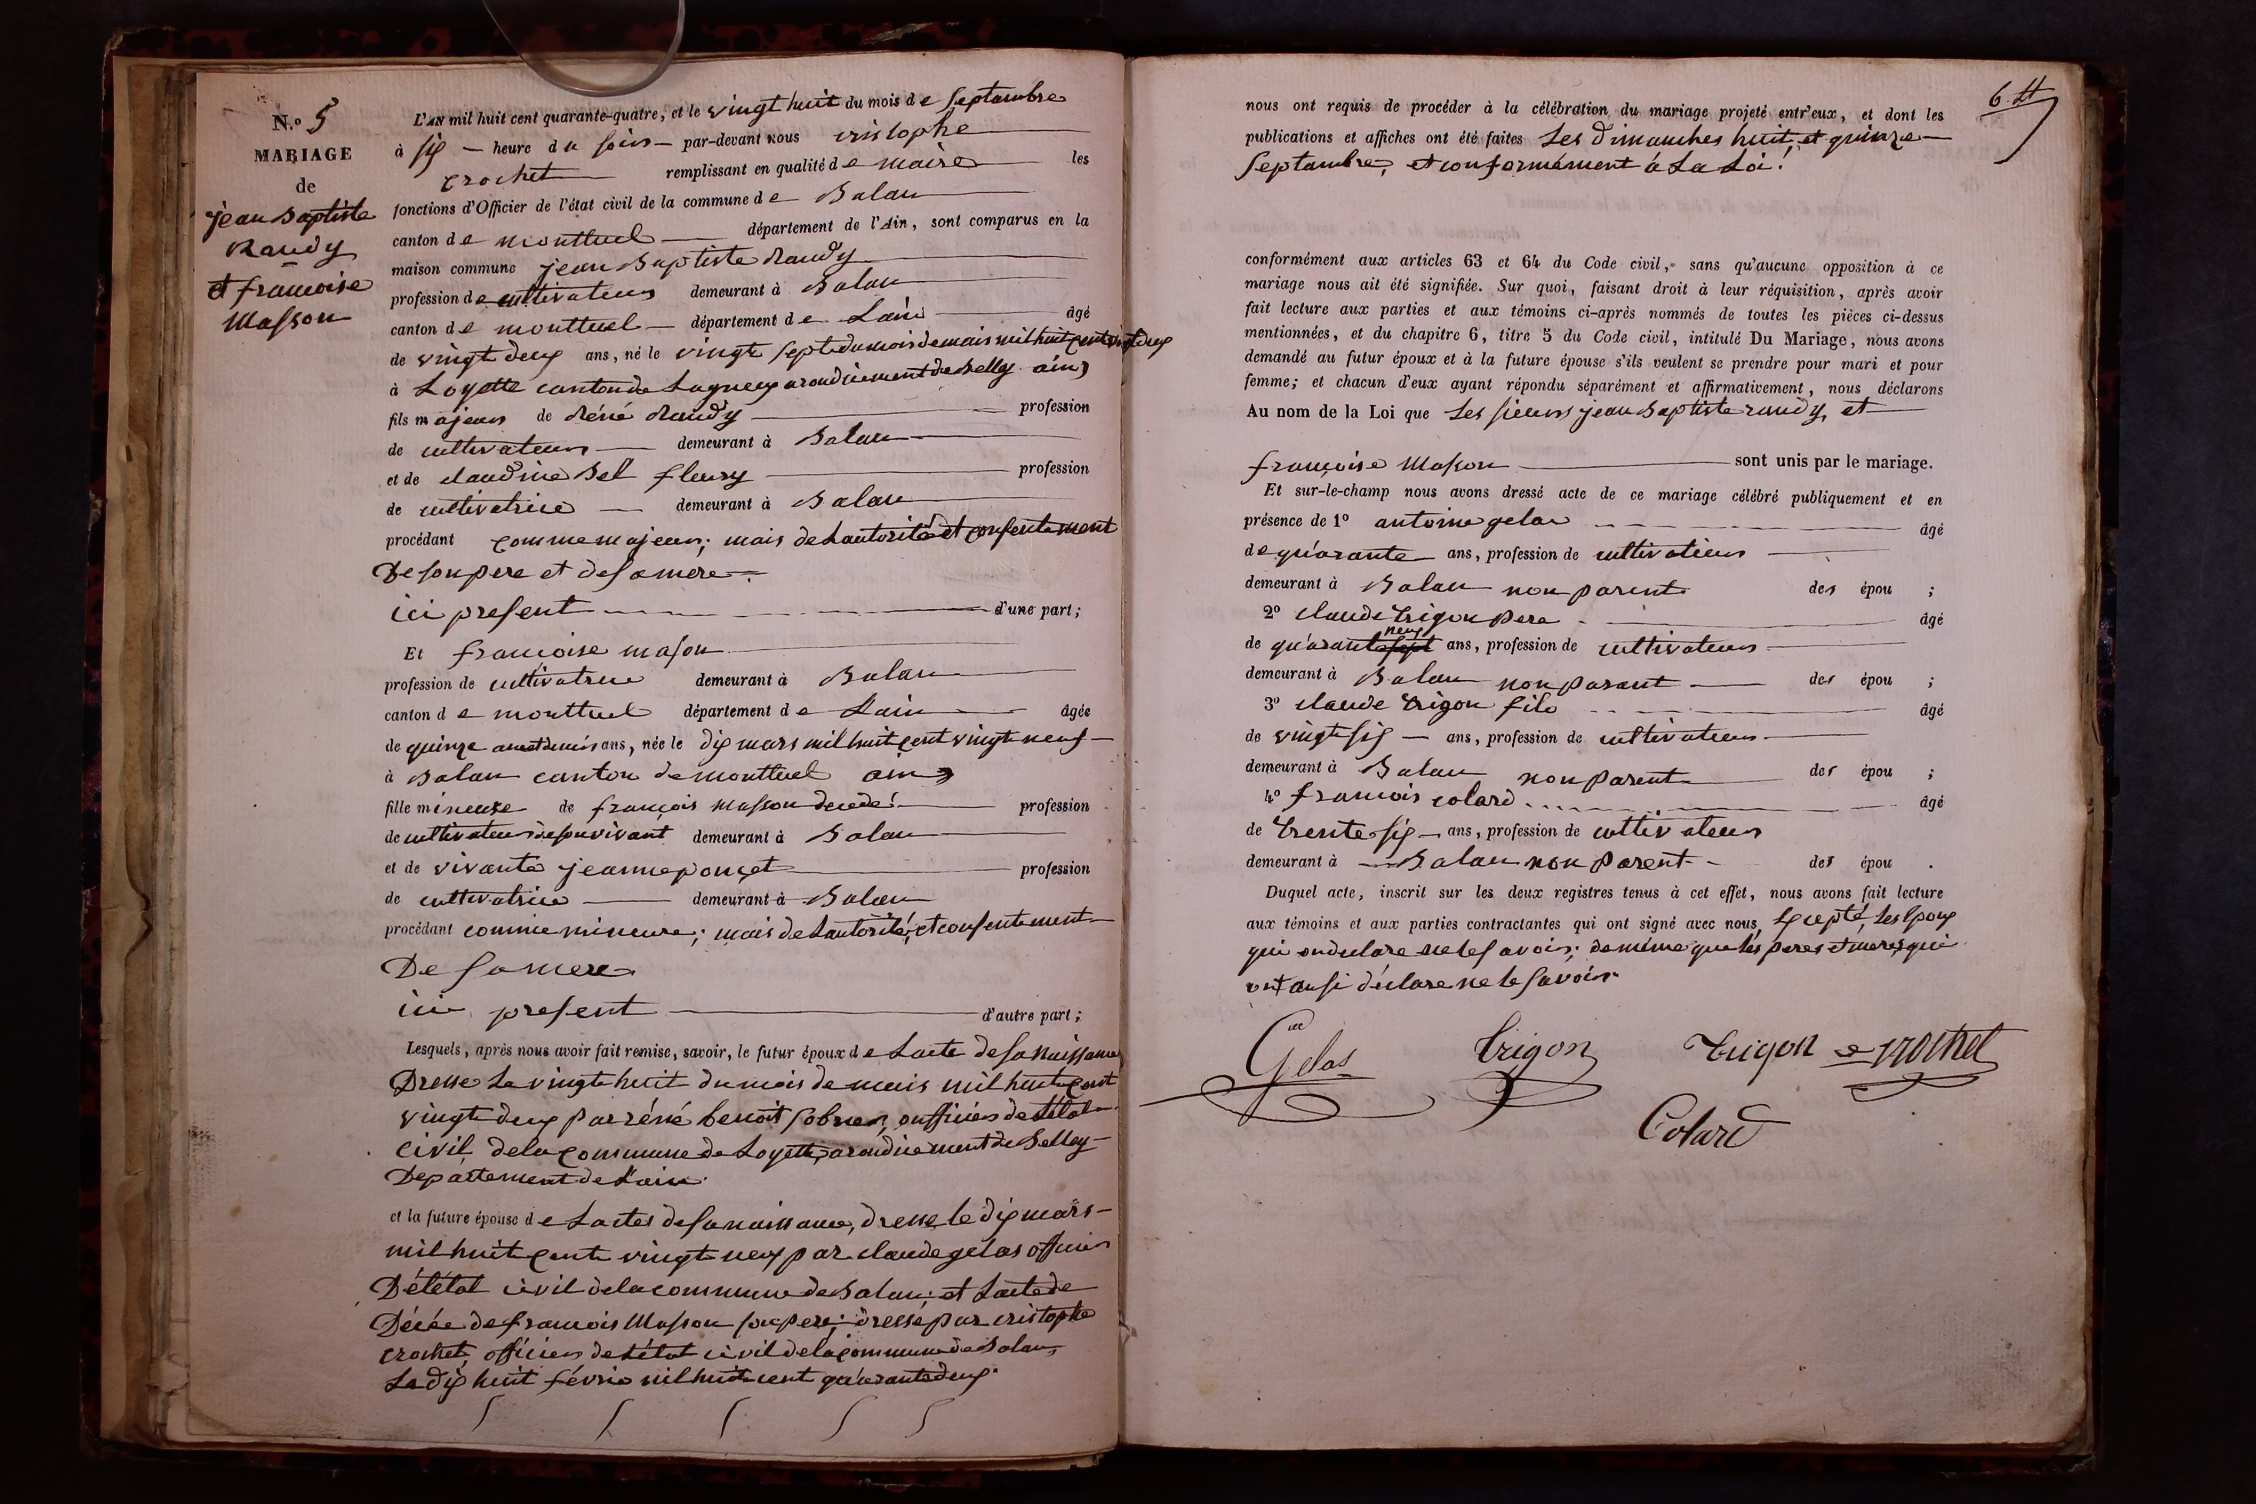 N.o 5
MARIAGE
de
jean Baptiste
Randy
et francoise
Masson
L'AN mil huit cent quarante-quatre, et le vingt huit du mois de Septambre
à six heure du soir par-devant nous cristophe
crochet remplissant en qualité de maire les
fonctions d'Officier de l'état civil de la commune de Balan
canton de montluel département de l'Ain, sont comparus en la
maison commune jean Baptiste Randy
profession de cultivateur demeurant à Balan
canton de montluel département de Lain âgé
de vingt deux ans, né le vingt sept du mois de mais mil huit cent vingt deux
à Loyette canton de Lagneux arondicement de Belley ain
fils majeur de Réné Randy profession
de cultivateur demeurant à Balan
et de claudine Bel fleury profession
de cultivatrice demeurant à Balan
procédant comme majeur; mais de Lautorité et consentement
De son pere et de sa mere.
ici present d'une part;
Et francoise mason
profession de cultivatrice demeurant à Balan
canton de montluel département de Lain âgée
de quinze ans et demis ans, née le dix mars mil huit cent vingt neuf
à Balan canton de montluel ain
fille mineure de françois Masson decedé profession
de cultivateur de son vivant demeurant à Balan
et de vivante jeanne ponçet profession
de cultivatrice demeurant à Balan
procédant comme mineure; mais de Lautorité, et consentement
De sa mere
ici present d'autre part;
Lesquels, après nous avoir fait remise, savoir, le futur époux de Lacte de sa naissance
Dresse Le vingt huit du mois de mais mil huit cent
vingt deux par réné benoit officier de Létat
civil de la commune de Loyette, arondicement de Belley
Departement de Lain.
et la future épouse de Lactes de sa naissance, dresse le dix mars
mil huit cent vingt neuf par claude gelas officier
De létat civil de la commune de Balan; et Lacte de
Décée de francois Masson son pere; dressé par cristophe
crochet, officier de Létat civil de la commune de Balan,
Le dix huit févrie mil huit cent quarante deux.
6.
nous ont requis de procéder à la célébration du mariage projeté entr'eux, et dont les
publications et affiches ont été faites Les dimanches huit, et quinze
Septambre, et conformément à La Loi!
conformément aux articles 63 et 64 du Code civil, sans qu'aucune opposition à ce
mariage nous ait été signifiée. Sur quoi, faisant droit à leur réquisition, après avoir
fait lecture aux parties et aux témoins ci-après nommés de toutes les pièces ci-dessus
mentionnées, et du chapitre 6, titre 5 du Code civil, intitulé Du Mariage, nous avons
demandé au futur époux et à la future épouse s'ils veulent se prendre pour mari et pour
femme; et chacun d'eux ayant répondu séparément et affirmativement, nous déclarons
Au nom de la Loi que Les sieurs jean Baptiste randy, et
françoise Masson sont unis par le mariage.
Et sur-le-champ nous avons dressé acte de ce mariage célébré publiquement et en
présence de 1o antoine gelas âgé
de quarante ans, profession de cultivateur
demeurant à Balan non parent des épou ;
2o claude trigon pere âgé
de quarante sept neuf ans, profession de cultivateur
demeurant à Balan non parant des épou ;
3o claude trigon fils âgé
de vingt six ans, profession de cultivateur
demeurant à Balan non parent des épou ;
4o francois colard âgé
de trente six ans, profession de cultivateur
demeurant à Balan non parent des épou .
Duquel acte, inscrit sur les deux registres tenus à cet effet, nous avons fait lecture
aux témoins et aux parties contractantes qui ont signé avec nous, Excepté, Les Epoux
qui on declare ne le savoir; de même que Les peres et meres qui
ont ausi déclare ne le savoir
Gelas trigon trigon crochet
Colard